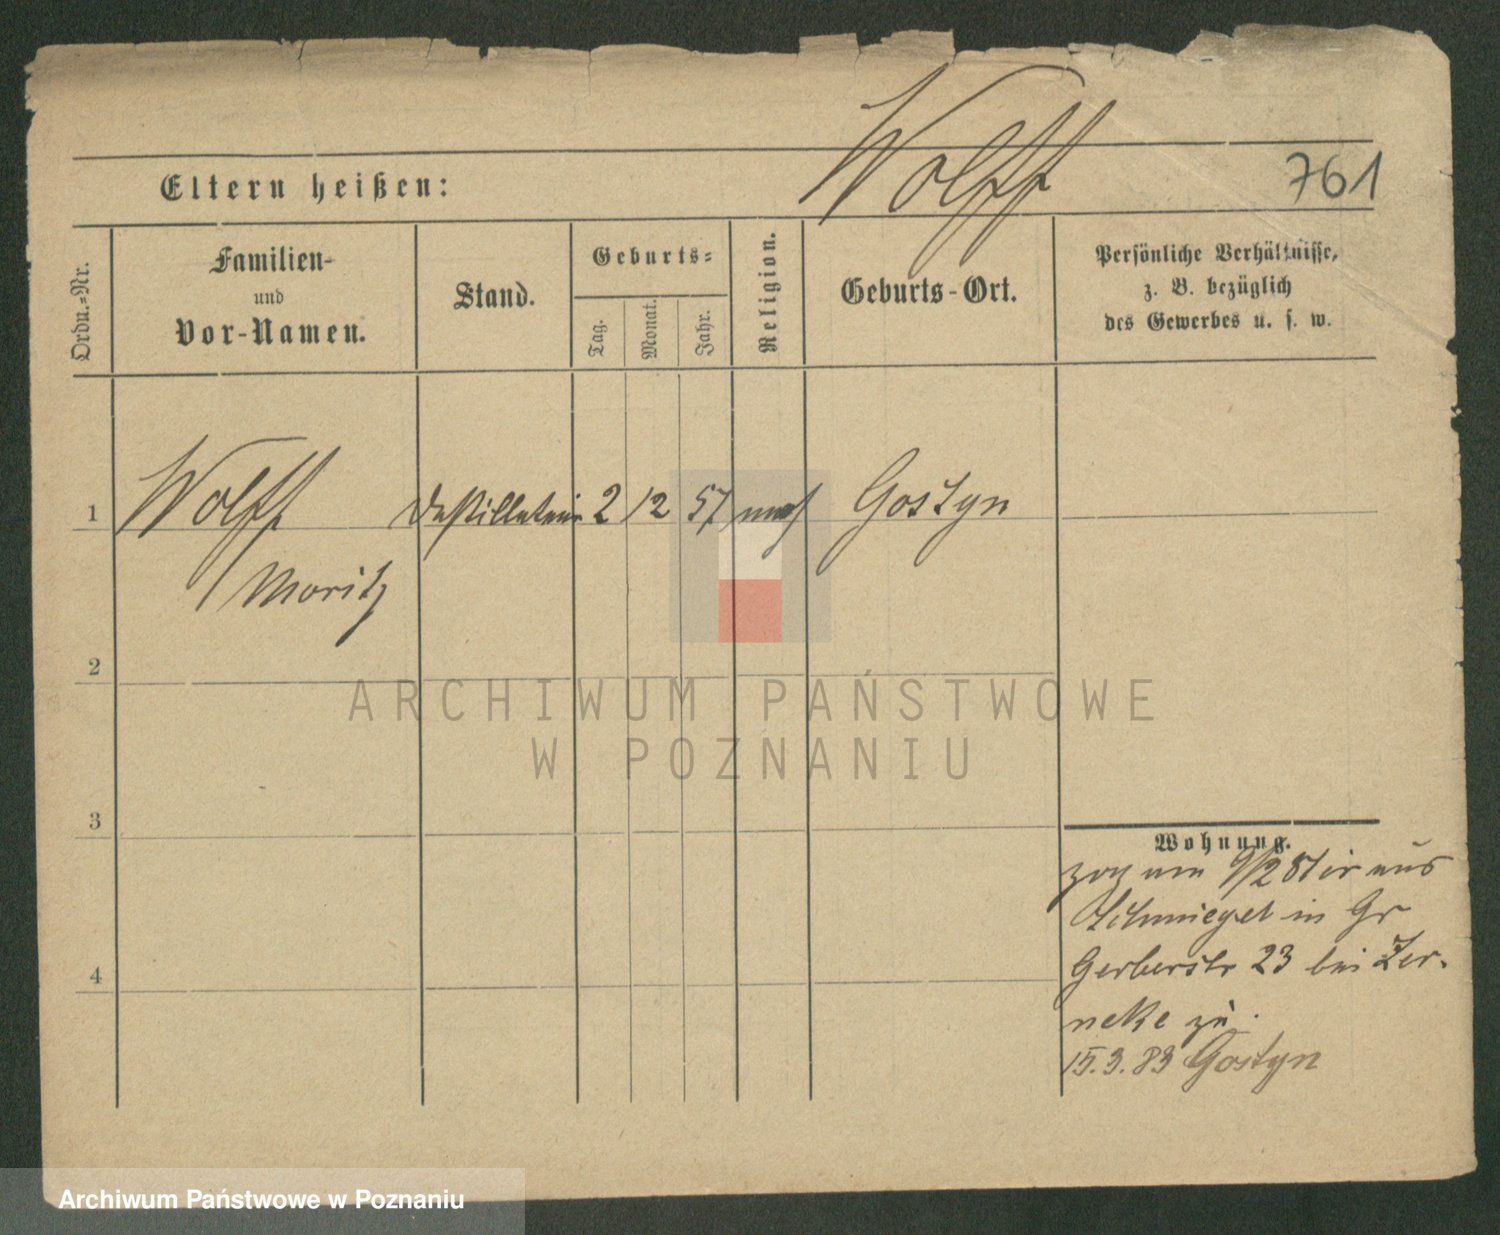 Wolff
761
Eltern heißen:
Ordn.-Nr.
Familien-
und
Vor-Namen.
Stand.
Geburts-
Tag.
Monat.
Jahr.
Religion.
Geburts-Ort.
Persönliche Verhältnisse,
z. B. bezüglich
des Gewerbes u. s. w.
1
Wolff
Moritz
Destillateur
2
12
57
mos
Gostyn
2
3
4
ARCHIWUM PAŃSTWOWE
W POZNANIU
Wohnung.
zog am 9/2 81 aus
Schmiegel in Gr
Gerberstr 23 bei Zer-
neke zu.
15.3.83 Gostyn
Archiwum Państwowe w Poznaniu